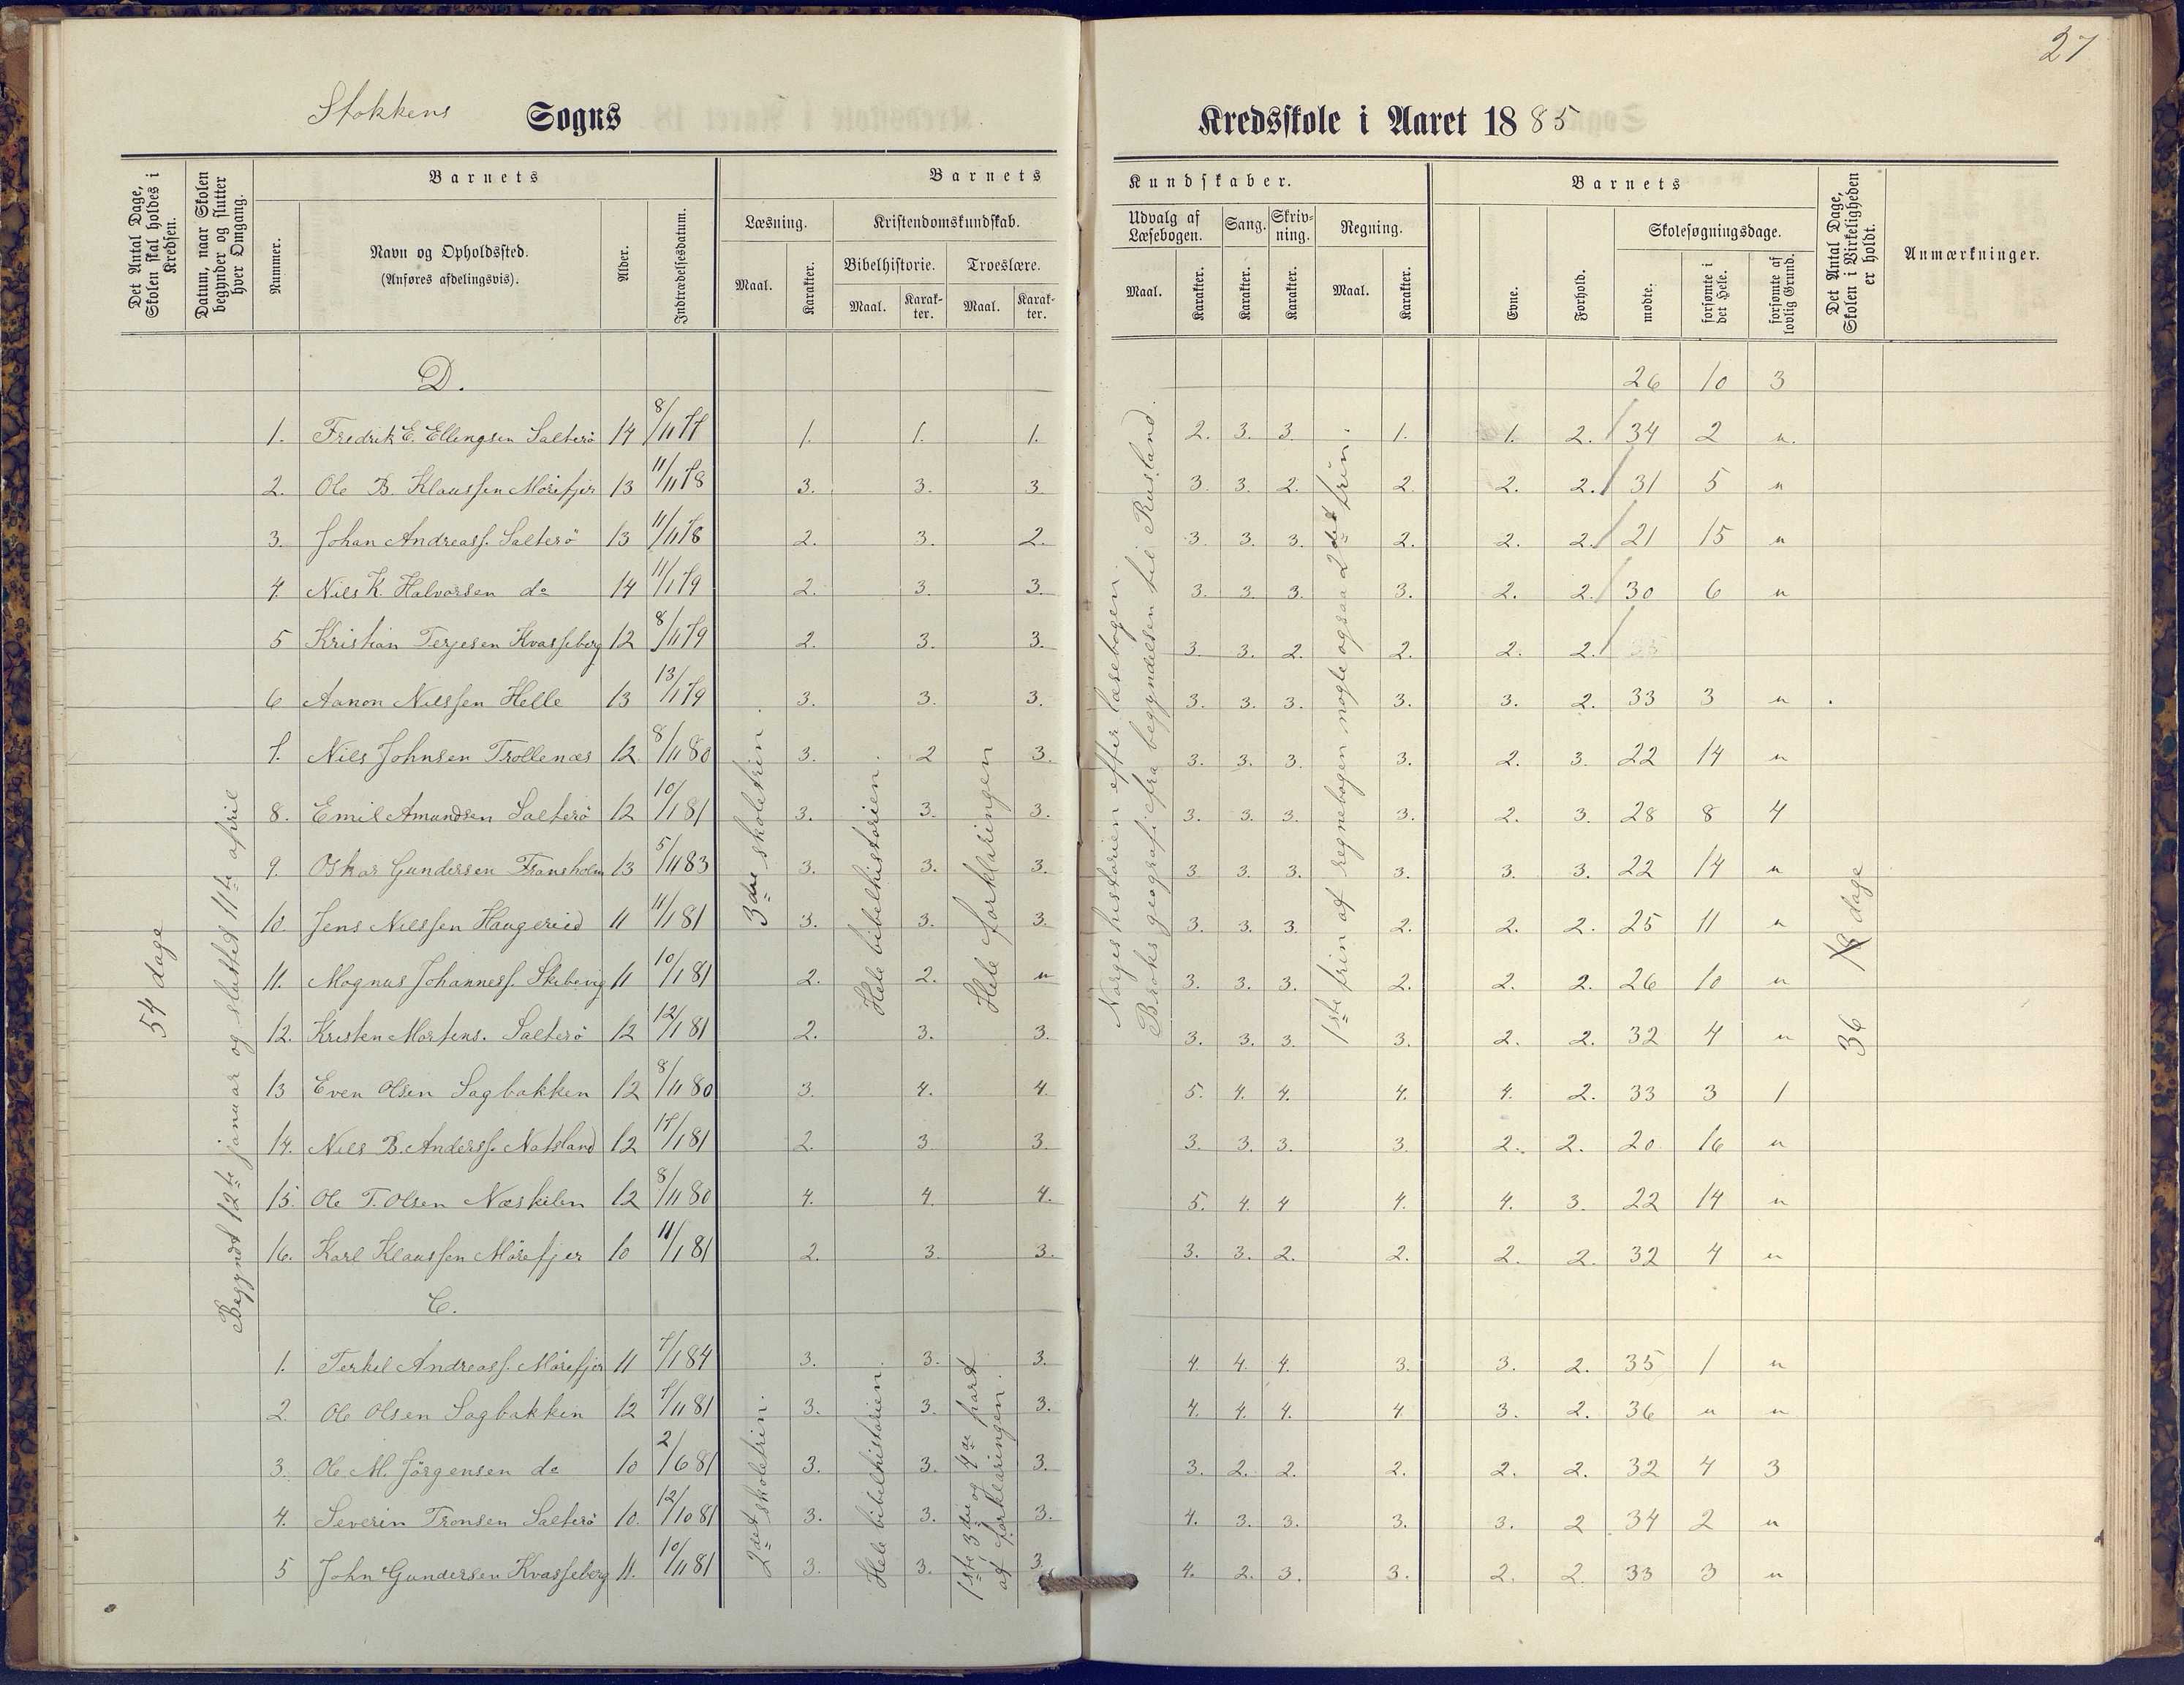 27
Stokkens Sogns Kredsskole i Aaret 1885
Det Antal Dage, Skolen skal holdes i Kredsen.
Datum, naar Skolen begynder og slutter hver Omgang.
Barnets
Nummer.
Navn og Opholdssted.
(Anføres afdelingsvis).
Alder.
Indtrædelsesdatum.
Barnets Kundskaber.
Læsning.
Maal.
Karakter.
Kristendomskundskab.
Bibelhistorie.
Maal.
Karakter.
Troeslære.
Maal.
Karakter.
Udvalg af Læsebogen.
Maal.
Karakter.
Sang.
Karakter.
Skrivning.
Karakter.
Regning.
Maal.
Karakter.
Barnets
Evne.
Forhold.
Skolesøgningsdage.
mødte.
forsømte i det Hele.
forsømte af lovlig Grund.
Det Antal Dage, Skolen i Virkeligheden er holdt.
Anmærkninger.
54 dage
Begyndt 12te januar og sluttet 11te april
3die skoletrin.
Hele bibelhistorien.
Hele forklaringen
Norges historien efter læsebogen.
Broks geografi fra begyndelsen til Rusland.
1ste trin af regnebogen nogle ogsaa 2det trin.
36 dage
D. 26 10 3
1. Fredrik E. Ellingsen Salterö 14 8/11 77 1. 1. 1. 2. 3. 3. 1. 1. 2. 34 2 "
2. Ole B. Klaussen Mörefjer 13 11/11 78 3. 3. 3. 3. 3. 2. 2. 2. 2. 31 5 "
3. Johan Andreass. Salterö 13 11/11 78 2. 3. 2. 3. 3. 3. 2. 2. 2. 21 15 "
4. Nils K. Halvorsen do 14 11/1 79 2. 3. 3. 3. 3. 3. 3. 2. 2. 30 6 "
5 Kristian Terjesen Kvasseberg 12 8/11 79 2. 3. 3. 3. 3. 2. 2. 2. 2.
6 Aanon Nilssen Helle 13 13/1 79 3. 3. 3. 3. 3. 3. 3. 3. 2. 33 3 "
7. Nils Johnsen Trollenæs 12 8/11 80 3. 2 3. 3. 3. 3. 3. 2. 3. 22 14 "
8. Emil Amundsen Salterö 12 10/1 81 3. 3. 3. 3. 3. 3. 3. 2. 3. 28 8 4
9. Oskar Gundersen Fransholm 13 5/11 83 3. 3. 3. 3. 3. 3. 3. 3. 3. 22 14 "
10. Jens Nilssen Haugereid 11 11/1 81 3. 3. 3. 3. 3. 3. 2. 2. 2. 25 11 "
11. Magnus Johanness. Skibevig 11 10/1 81 2. 2. " 3. 3. 3. 2. 2. 2. 26 10 "
12. Kristen Mortens. Salterö 12 12/1 81 2. 3. 3. 3. 3. 3. 3. 2. 2. 32 4 "
13 Even Olsen Sagbakken 12 8/11 80 3. 4. 4. 5. 4. 4. 4. 4. 2. 33 3 1
14. Nils B. Anderss. Natsland 12 17/1 81 2. 3. 3. 3. 3. 3. 3. 2. 2. 20 16 "
15. Ole T. Olsen Næskilen 12 8/11 80 4. 4. 4. 5. 4. 4 4. 4. 3. 22 14 "
16. Karl Klaussen Mörefjer 10 11/1 81 2. 3. 3. 3. 3. 2. 2. 2. 2. 32 4 "
C.
2det skoletrin.
Hele bibelhistorien.
1ste 3die og 4de part af forklaringen.
1. Terkel Andreass. Mörefjer 11 7/1 84 3. 3. 3. 4. 4. 4. 3. 3. 2. 35 1 "
2 Ole Olsen Sagbakken 12 7/11 81 3. 3. 3. 4. 4. 4. 4. 3. 2. 36 " "
3. Ole M. Jörgensen do 10 2/6 81 3. 3. 3. 3. 2. 2. 2. 2. 2. 32 4 3
4. Severin Tronsen Salterö 10. 12/10 81 3. 3. 3. 4. 3. 3. 3. 3. 2 34 2 "
5 John Gundersen Kvasseberg 11. 10/11 81 3. 3. 3. 4. 2. 3. 3. 2. 2. 33 3 "